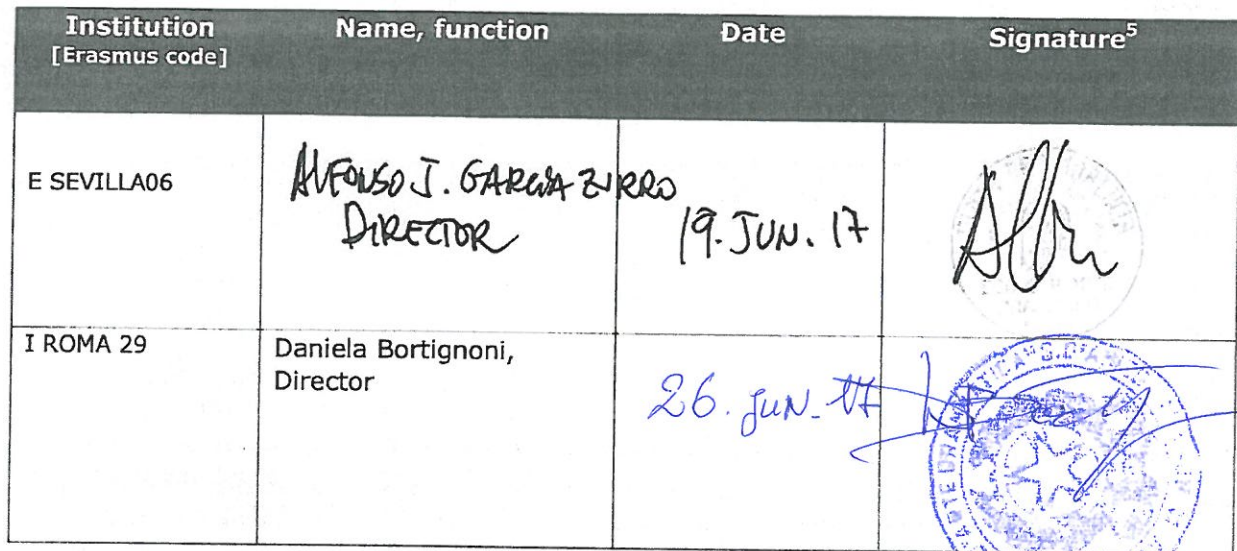 Institution
[Erasmus code]
Name, function
Date
Signature5
E SEVILLA06
ALFONSO J. GARCIA ZURRO
DIRECTOR
19. JUN. 17
I ROMA 29
Daniela Bortignoni,
Director
26. JUN. 17
ARTE DRAMMATICA "S. D'AM